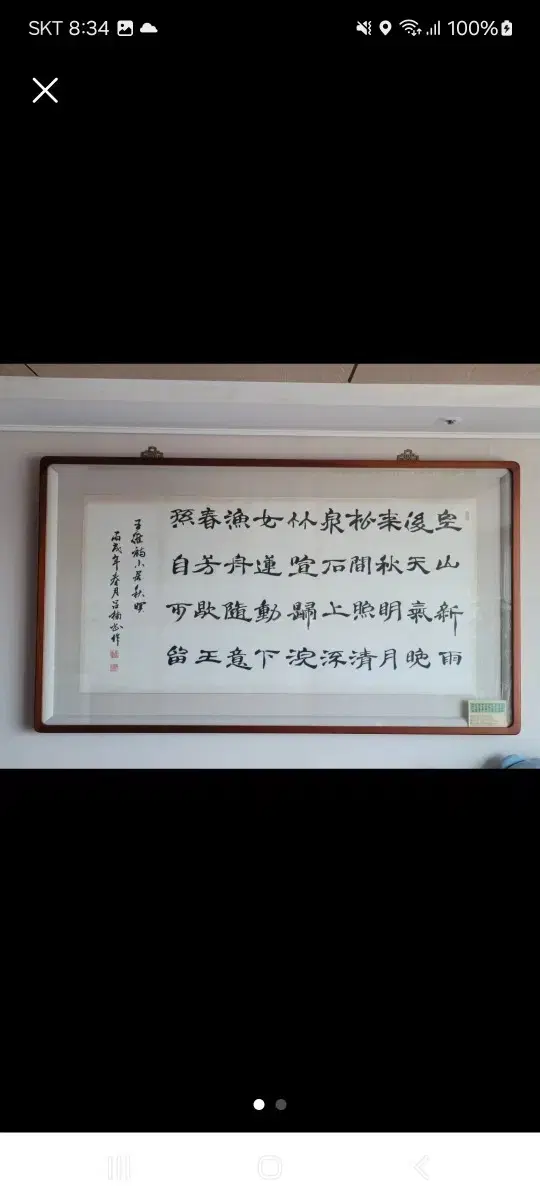 SKT 8:34 100%
空山新雨
後天氣晚
來秋明月
松間照清
泉石上流
竹喧歸浣
女蓮動下
漁舟隨意
春芳歇王
孫自可留
王維詩山居秋暝
丙戌年春月呂